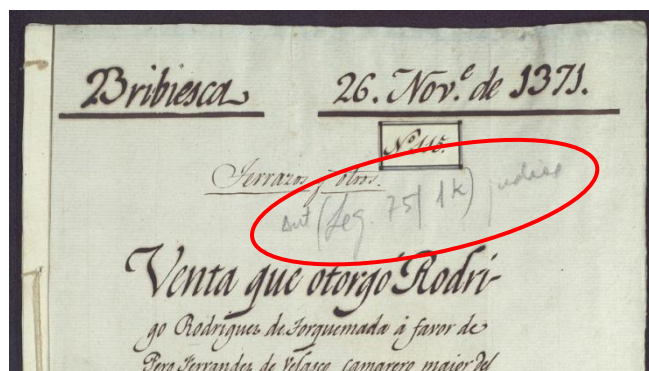 Bribiesca 26. Nov.ᵉ de 1371.
Nº 115.
Terrazos y otros.
Ant (Leg. 75/ 1K) judios
Venta que otorgó Rodri-
go Rodriguez de Torquemada á favor de
Pero Ferrandez de Velasco, camarero maior del